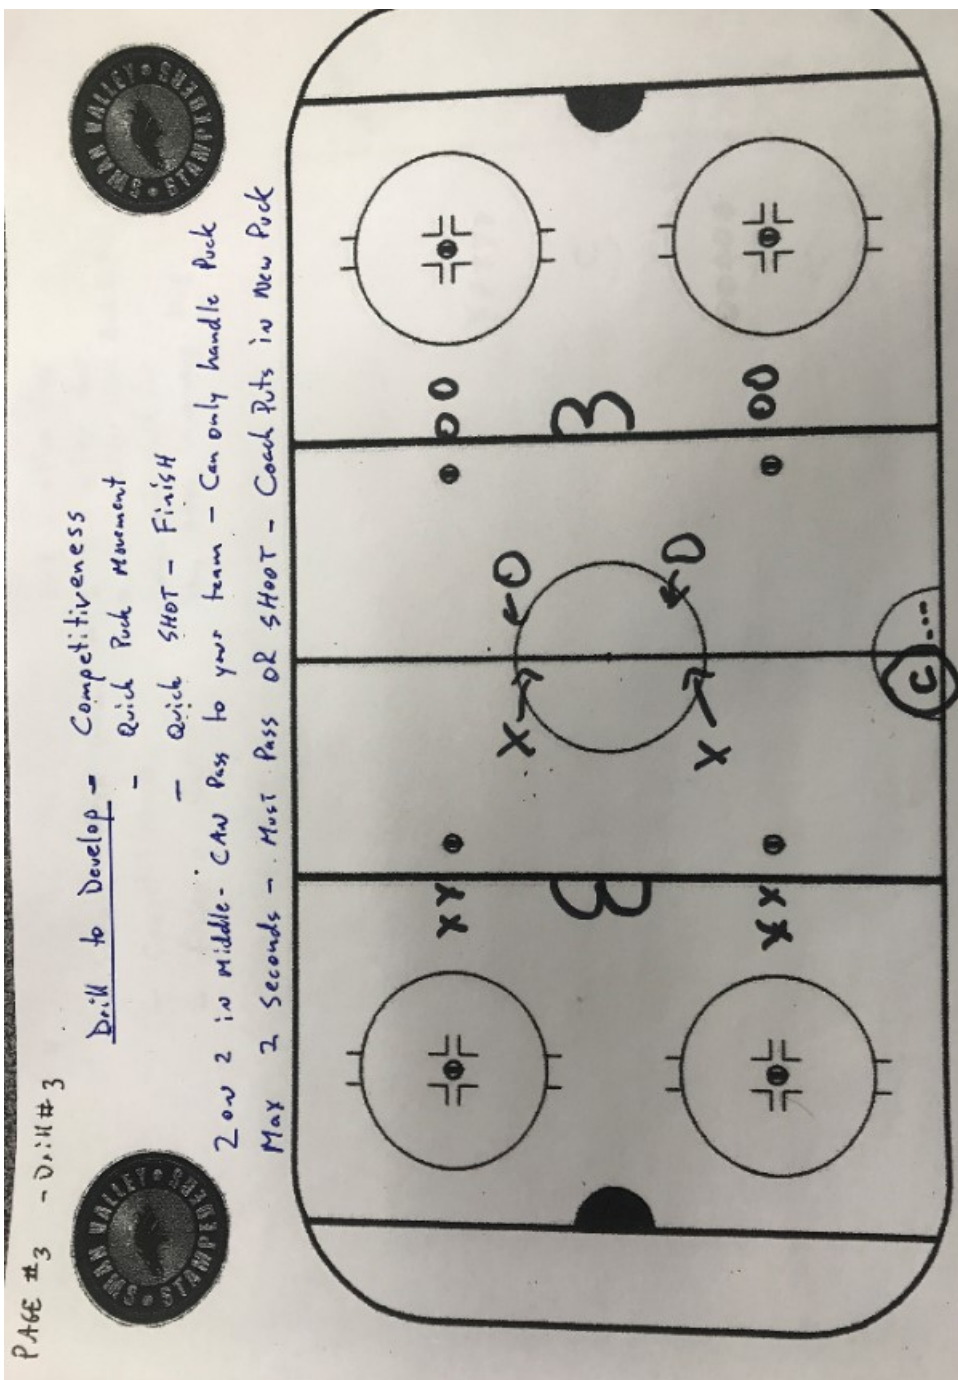 PAGE #3 - Drill #3
SWAN VALLEY • STAMPEDERS •
SWAN VALLEY • STAMPEDERS •
Drill to Develop - Competitiveness
- Quick Puck Movement
- Quick SHOT - Finish
2 on 2 in Middle - CAN Pass to your team - Can only handle Puck
Max 2 Seconds - Must Pass OR SHOOT - Coach Puts in New Puck
XX
OO
X
O
3
3
X
O
XX
OO
C